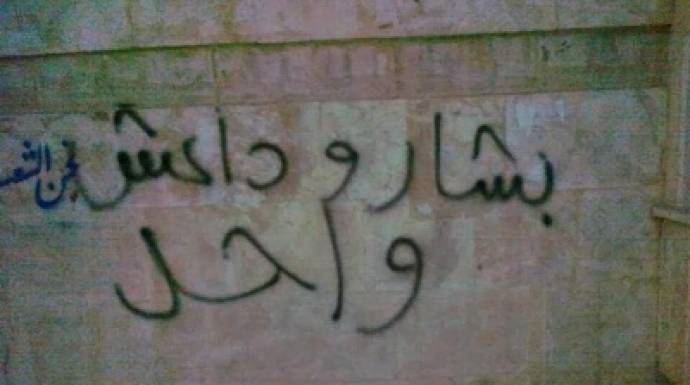 بشار و داعش
واحد
نحن الشعب